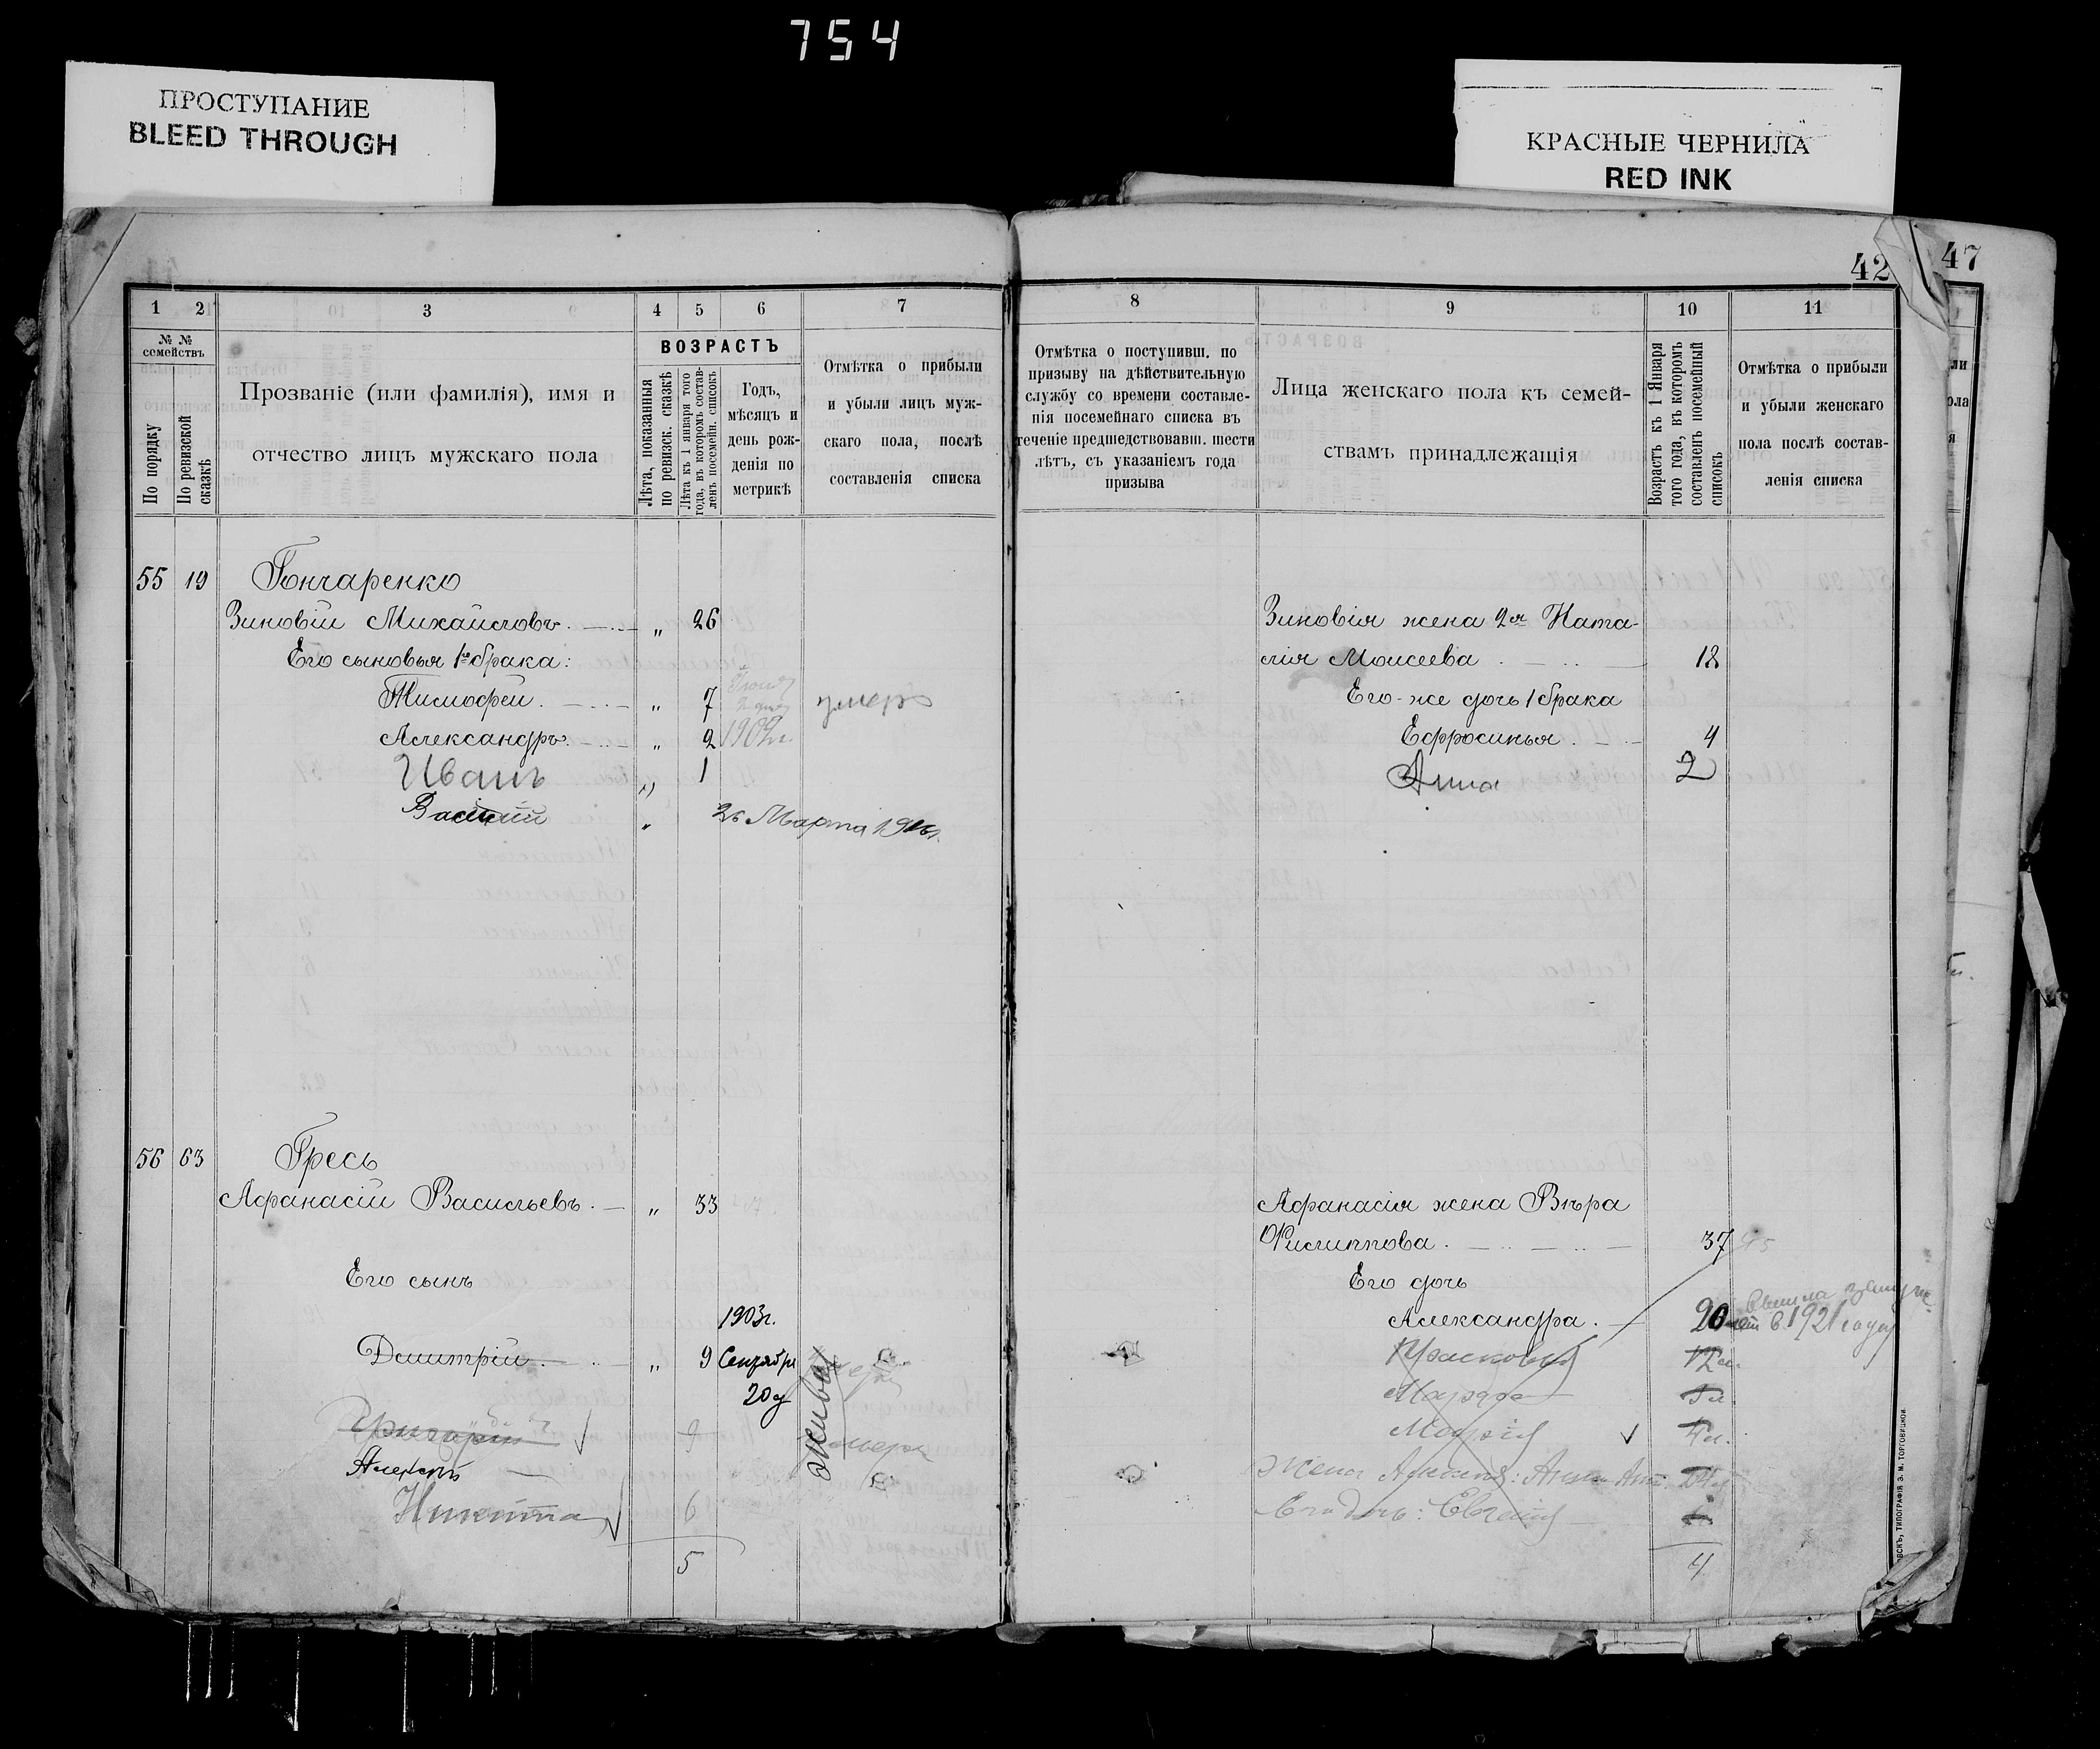 754
ПРОСТУПАНИЕ
BLEED THROUGH
КРАСНЫЕ ЧЕРНИЛА
RED INK
42
47
1 2 3 4 5 6 7
№ № семействъ
По порядку
По ревизской сказкѣ
Прозваніе (или фамилія), имя и
отчество лицъ мужскаго пола
ВОЗРАСТЪ
Лѣта, показанныя по ревизск. сказкѣ
Лѣта къ 1 января того года, въ которомъ составленъ посемейн. списокъ
Годъ,
мѣсяцъ и
день рож-
денія по
метрикѣ
Отмѣтка о прибыли
и убыли лицъ муж-
скаго пола, послѣ
составленія списка
8 9 10 11
Отмѣтка о поступивш. по
призыву на дѣйствительную
службу со времени составле-
нія посемейнаго списка въ
теченіе предшедствовавш. шести
лѣтъ, съ указаніемъ года
призыва
Лица женскаго пола къ семей-
ствамъ принадлежащія
Возрастъ къ 1 Января
того года, въ которомъ
составленъ посемейный
списокъ
Отмѣтка о прибыли
и убыли женскаго
пола послѣ состав-
ленія списка
55 19 Гончаренко
Зиновій Михайловъ. „ 26
Его сыновья 1го брака:
Тимофей. „ 7 умеръ
Александръ. „ 2 1902г.
Иванъ „ 1
Василій „ 26 Марта
Зиновія жена 2я Ната-
лія Моисеева 18
Его-же дочь 1 брака
Ефросинья. 4
Анна 2
56 63 Гресь
Афанасій Васильевъ. „ 33
Его сынъ
1903г.
Дмитрій. „ 9 Сентября
20 д
живъ
Григорій 9 умеръ
Алексѣй
Никита 6
5
Афанасія жена Вѣра
Филиппова. 37 45
Его дочь
Александра. 20 лет
Вышла замуж
в 1921 году
Прасковья 12 л.
Марфа
Марія 4 л.
Жена
Его дочь: Евгенія
4
ВСКЪ, ТИПОГРАФІЯ Э. М. ТОРГОВИЦКОЙ.